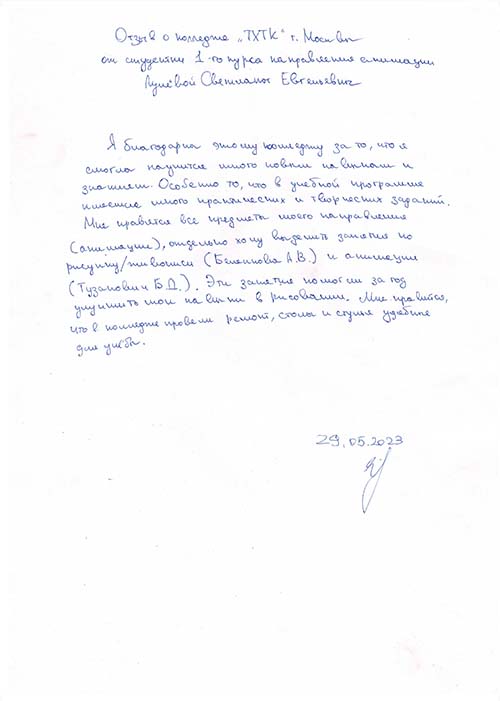 Отзыв о колледже "ТХТК" г. Москвы
от студентки 1-го курса направления анимации
Светланы Евгеньевны
Я благодарна этому колледжу за то, что я
смогла научится много новым навыкам и
знаниям. Особенно то, что в учебной программе
имеется много практических и творческих заданий.
Мне нравятся все предметы моего направления
(анимации), отдельно хочу выделить занятия по
рисунку/живописи (А.В.) и анимации
(Тузанович Б.Д.). Эти занятия помогли за год
улучшить мои навыки в рисовании. Мне нравится,
что в колледже провели ремонт, столы и стулья удобные
для учёбы.
29.05.2023